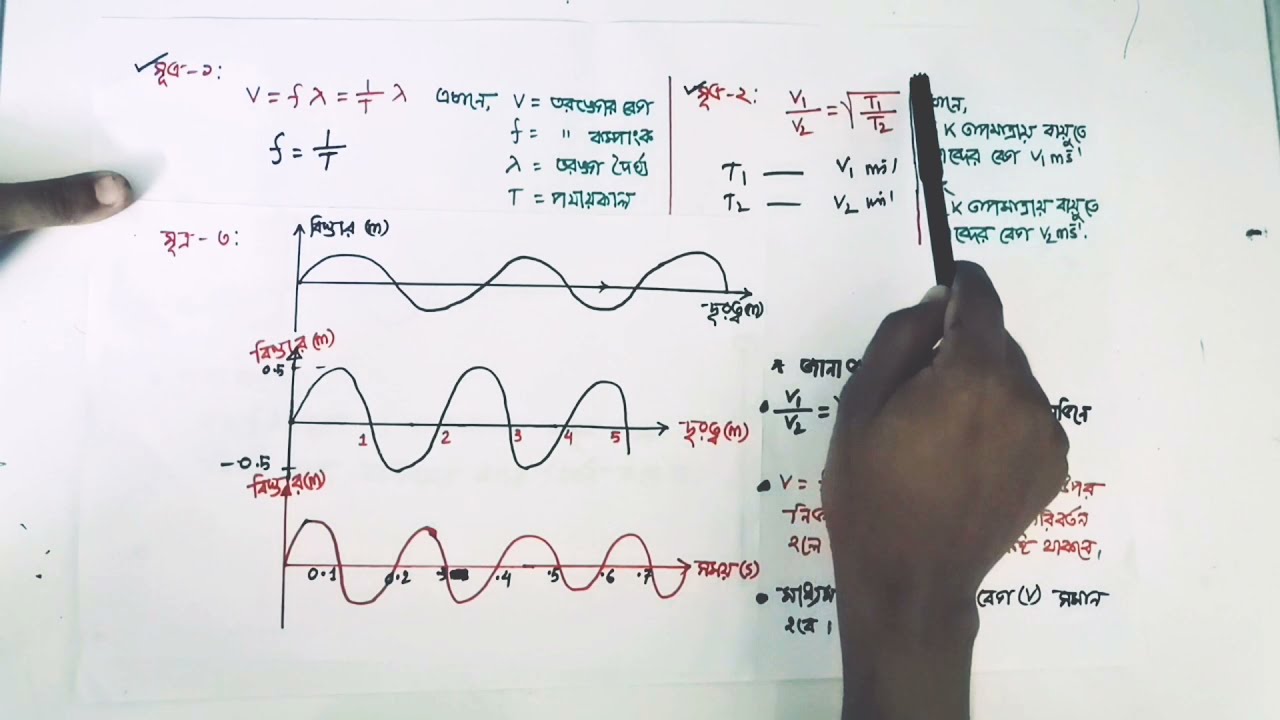 সূত্র-১:
V = f λ = 1/T λ এখানে, V = তরঙ্গের বেগ
f = 1/T
f = " কম্পাংক
λ = তরঙ্গ দৈর্ঘ্য
T = পর্যায়কাল
সূত্র-২: V₁/V₂ = √T₁/T₂
T₁ — V₁ ms⁻¹
T₂ — V₂ ms⁻¹
K তাপমাত্রায় বায়ুতে
বেগ V₁ ms⁻¹
K তাপমাত্রায় বায়ুতে
বেগ V₂ ms⁻¹.
সূত্র - ৩:
বিস্তার (m)
দূরত্ব(m)
বিস্তার (m)
0.5
1 2 3 4 5 দূরত্ব(m)
-0.5
বিস্তার(m)
0.1 0.2 .4 .5 .6 .7 সময়(s)
* জানা
• V₁/V₂ =
• V =
পরিবর্তন
হলে থাকবে।
• মাধ্যম বেগ (V) সমান
হবে।